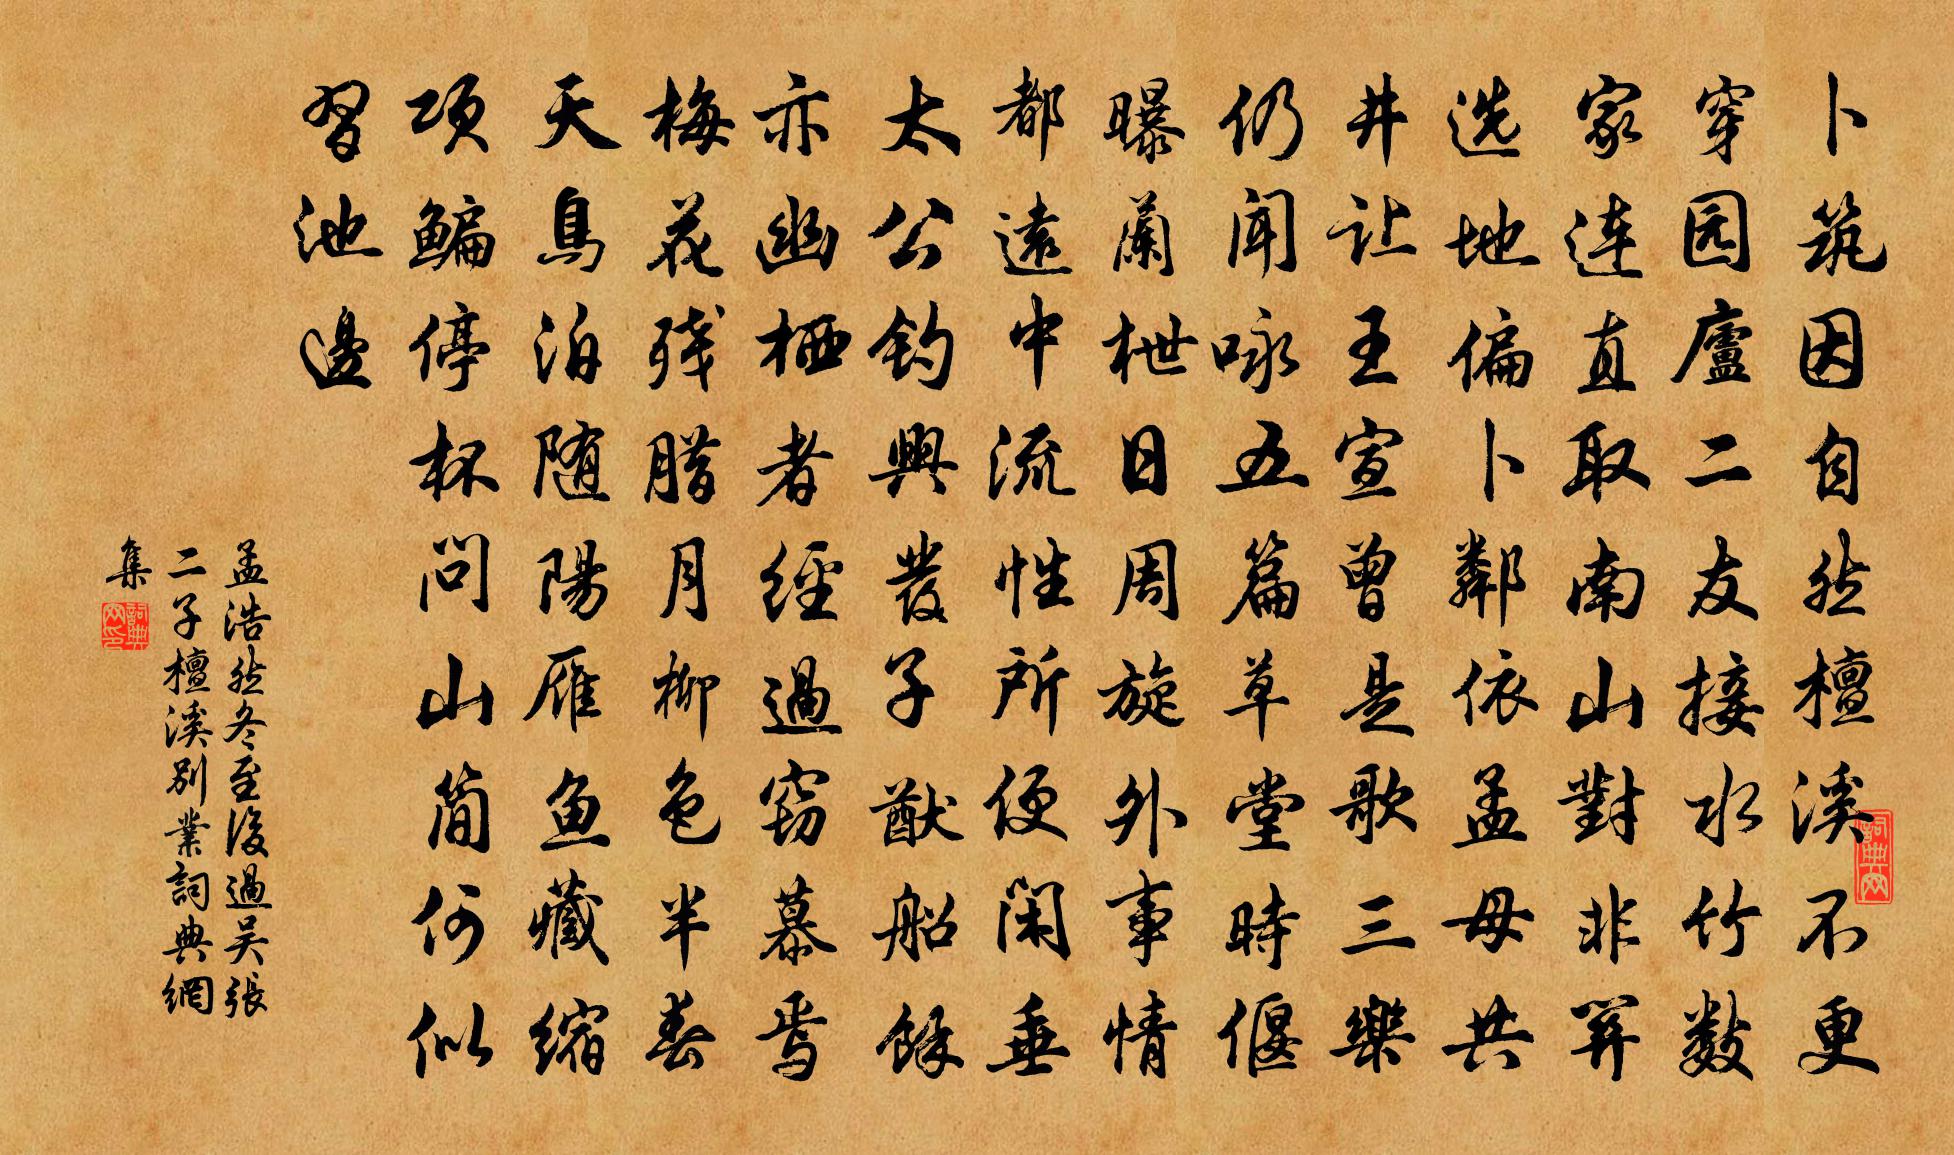 卜筑因自然檀溪不更
穿园廬二友接水竹数
家連直取南山對非關
选地偏卜鄰依孟母共
井让王宣曾是歌三樂
仍闻咏五篇草堂時偃
曝蘭枻日周旋外事情
都遠中流性所便闲垂
太公钓興發子猷船餘
亦幽栖者經過窃慕焉
梅花残腊月柳色半春
天鳥泊随陽雁鱼藏缩
项鳊停杯问山简何似
習池邊
孟浩然冬至後過吴張
二子檀溪别業詞典網
集
詞典网
詞典网印